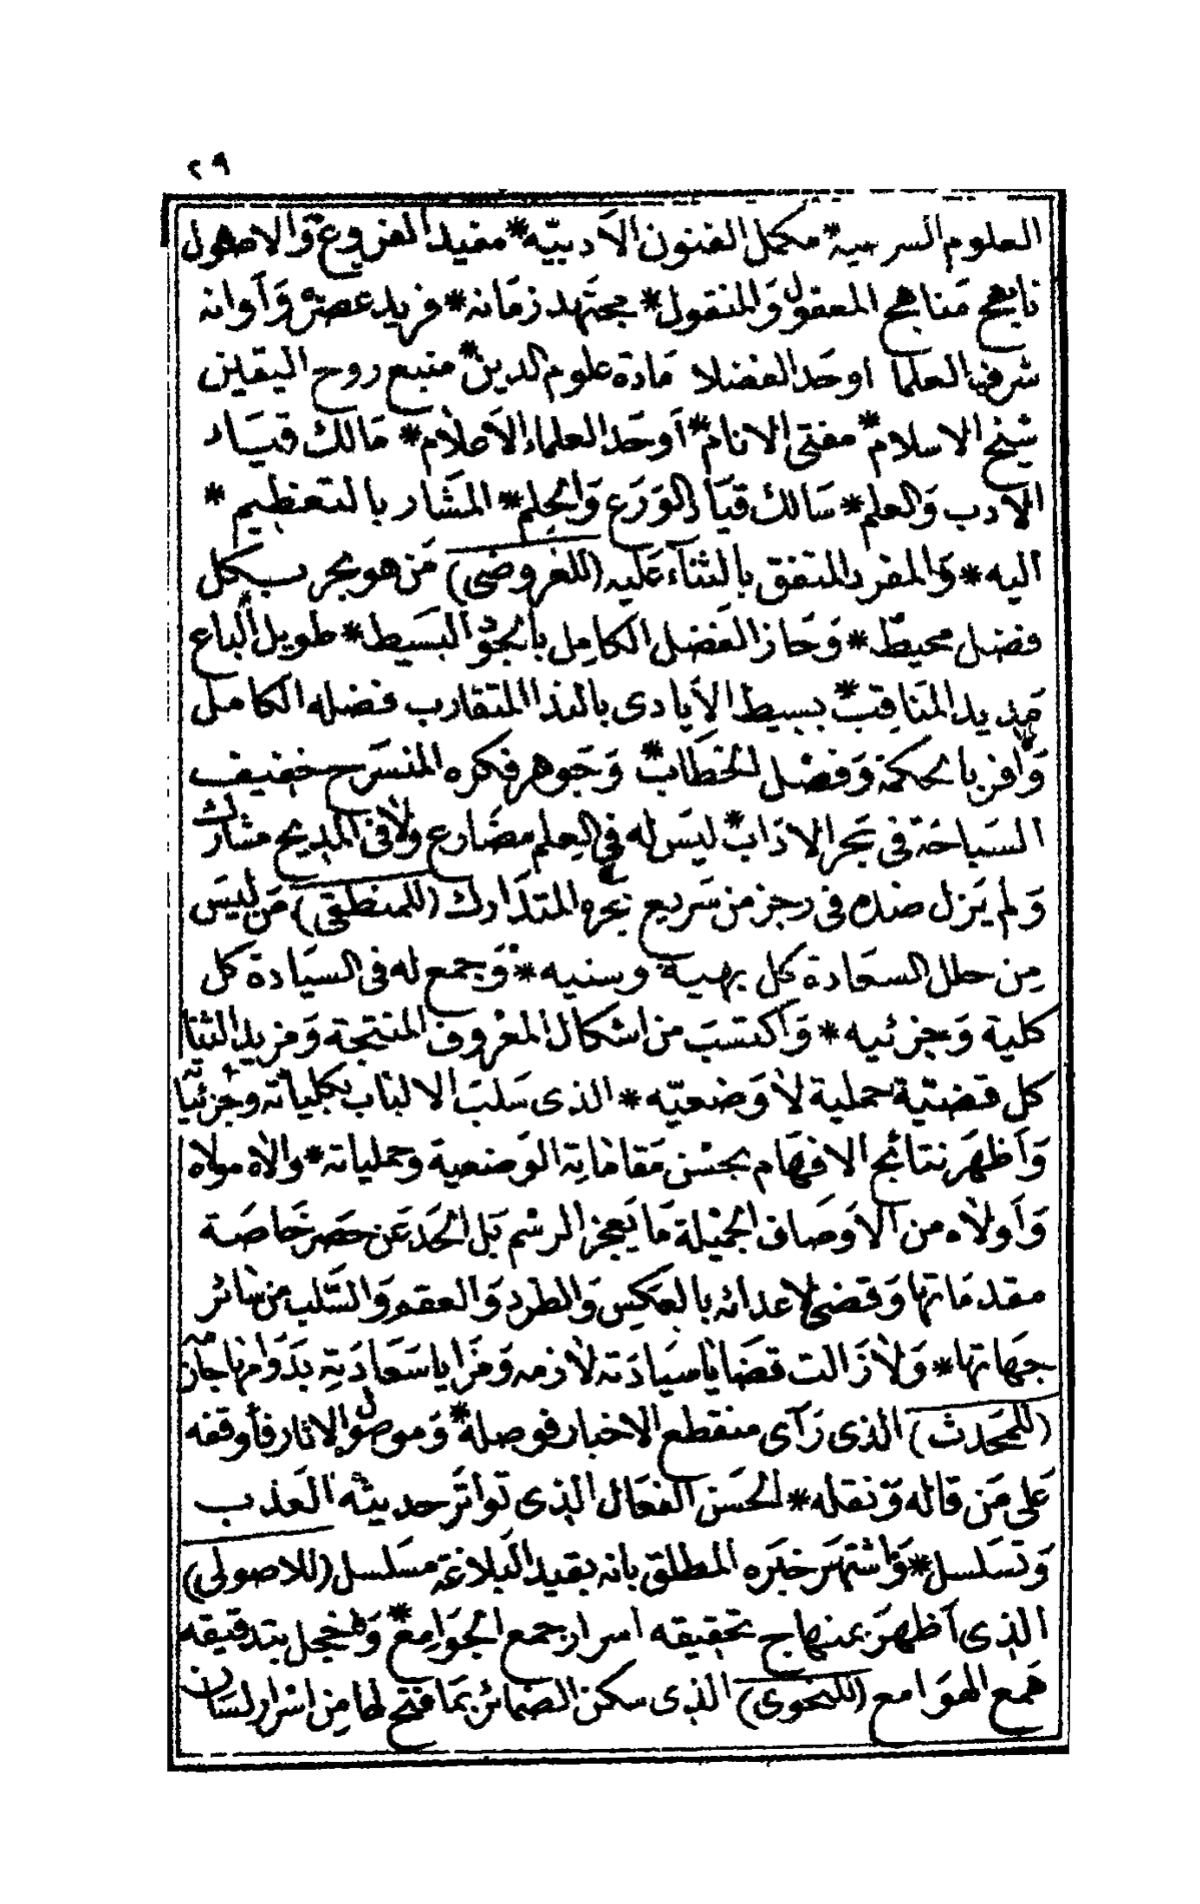 ٢٩
العلوم السرمية * مكمل الفنون الأدبيّه * مفيد الفروع وَالاصول
ناهج مَناهج المعقول وَالمنقول * مجتهد زمَانه * فريد عصره وَأوانه
شرف العلما اوحَد الفضلا مَادة علوم الدين * منبع روح اليقين
شيخ الاسلام * مفتى الانام * أوحَد العلماء الأعلام * مَالك قيَاد
الادب وَالعلم * سَالك قيَاد الوَرَع وَالحِلم * المشَار بالتعظيم *
اليه * وَالمفرد المتفق بالثناء عَليه (للعَروضى) مَن هو بحر بكل
فضل محيط * وَحَاز الفَضل الكامِل بالجوْد البَسيط * طويل الباع
مَديد المنَاقب * بسيط الأيادى بالندا المتقارب فضله الكامل
وَافر بالحكمة وَفصْل الخطَاب * وَجَوهر فكره المنسَرح خفيف
السبَاحَة فى بَحر الادَاب * ليسَ له فى العِلم مضَارع ولا فى المَديح مشارك
وَلم يَزل ضده فى رجز من سَريع بحره المتدَارك (للمنطقى) مَن ليسَ
مِن حلل السعَادة كل بهية وسنيه * وَجمع له فى السيَادة كل
كلية وَجزئيه * وَاكتسَبَ من اشكال المعْروف المنتجة وَمزيد الثنا
كل قضيّة حملية لا وَضعيّه * الذى سَلبَ الالباب بكلياته وجزئياته
وَأظهَر نتائج الافهَام بحسْن مَقامَاتِه الوَضعية وحملياته * والاه مولاه
وَأولاه من الأوصَاف الجميْلة مَا يَعجز الرسْم بَل الحَد عَن حَصر خَاصَة
مقدمَاتها وَقضى لاعدائه بالعكس وَالطرد وَالعقم وَالسَّلب من سَائر
جهَاتها * وَلا زَالت قضَايا سيَادَته لازمه وَمَزايا سَعَادَتِه بدَوَامها جَازمه
(للمحَدث) الذى رَآى منقطع الاخبار فوصله * وَموصول الاثار فأوقفه
عَلى مَن قاله وَنقله * الحَسَن الفعَال الذى توَاتَر حديثه العَذب
وَتسَلسل * وَاشتهَر خبَره المطلق بانه بقيد البَلاغَة مسَلسل (للاصولى)
الذى أظهَرَ بمنهاج تحقيقه اسرار جمع الجوَامِع * وَاخجل بتدقيقه
هَمع الهوَامع (للنحوى) الذى سكن الضمَائر بمَا فتح لهَا مِن اسْرار لسَان